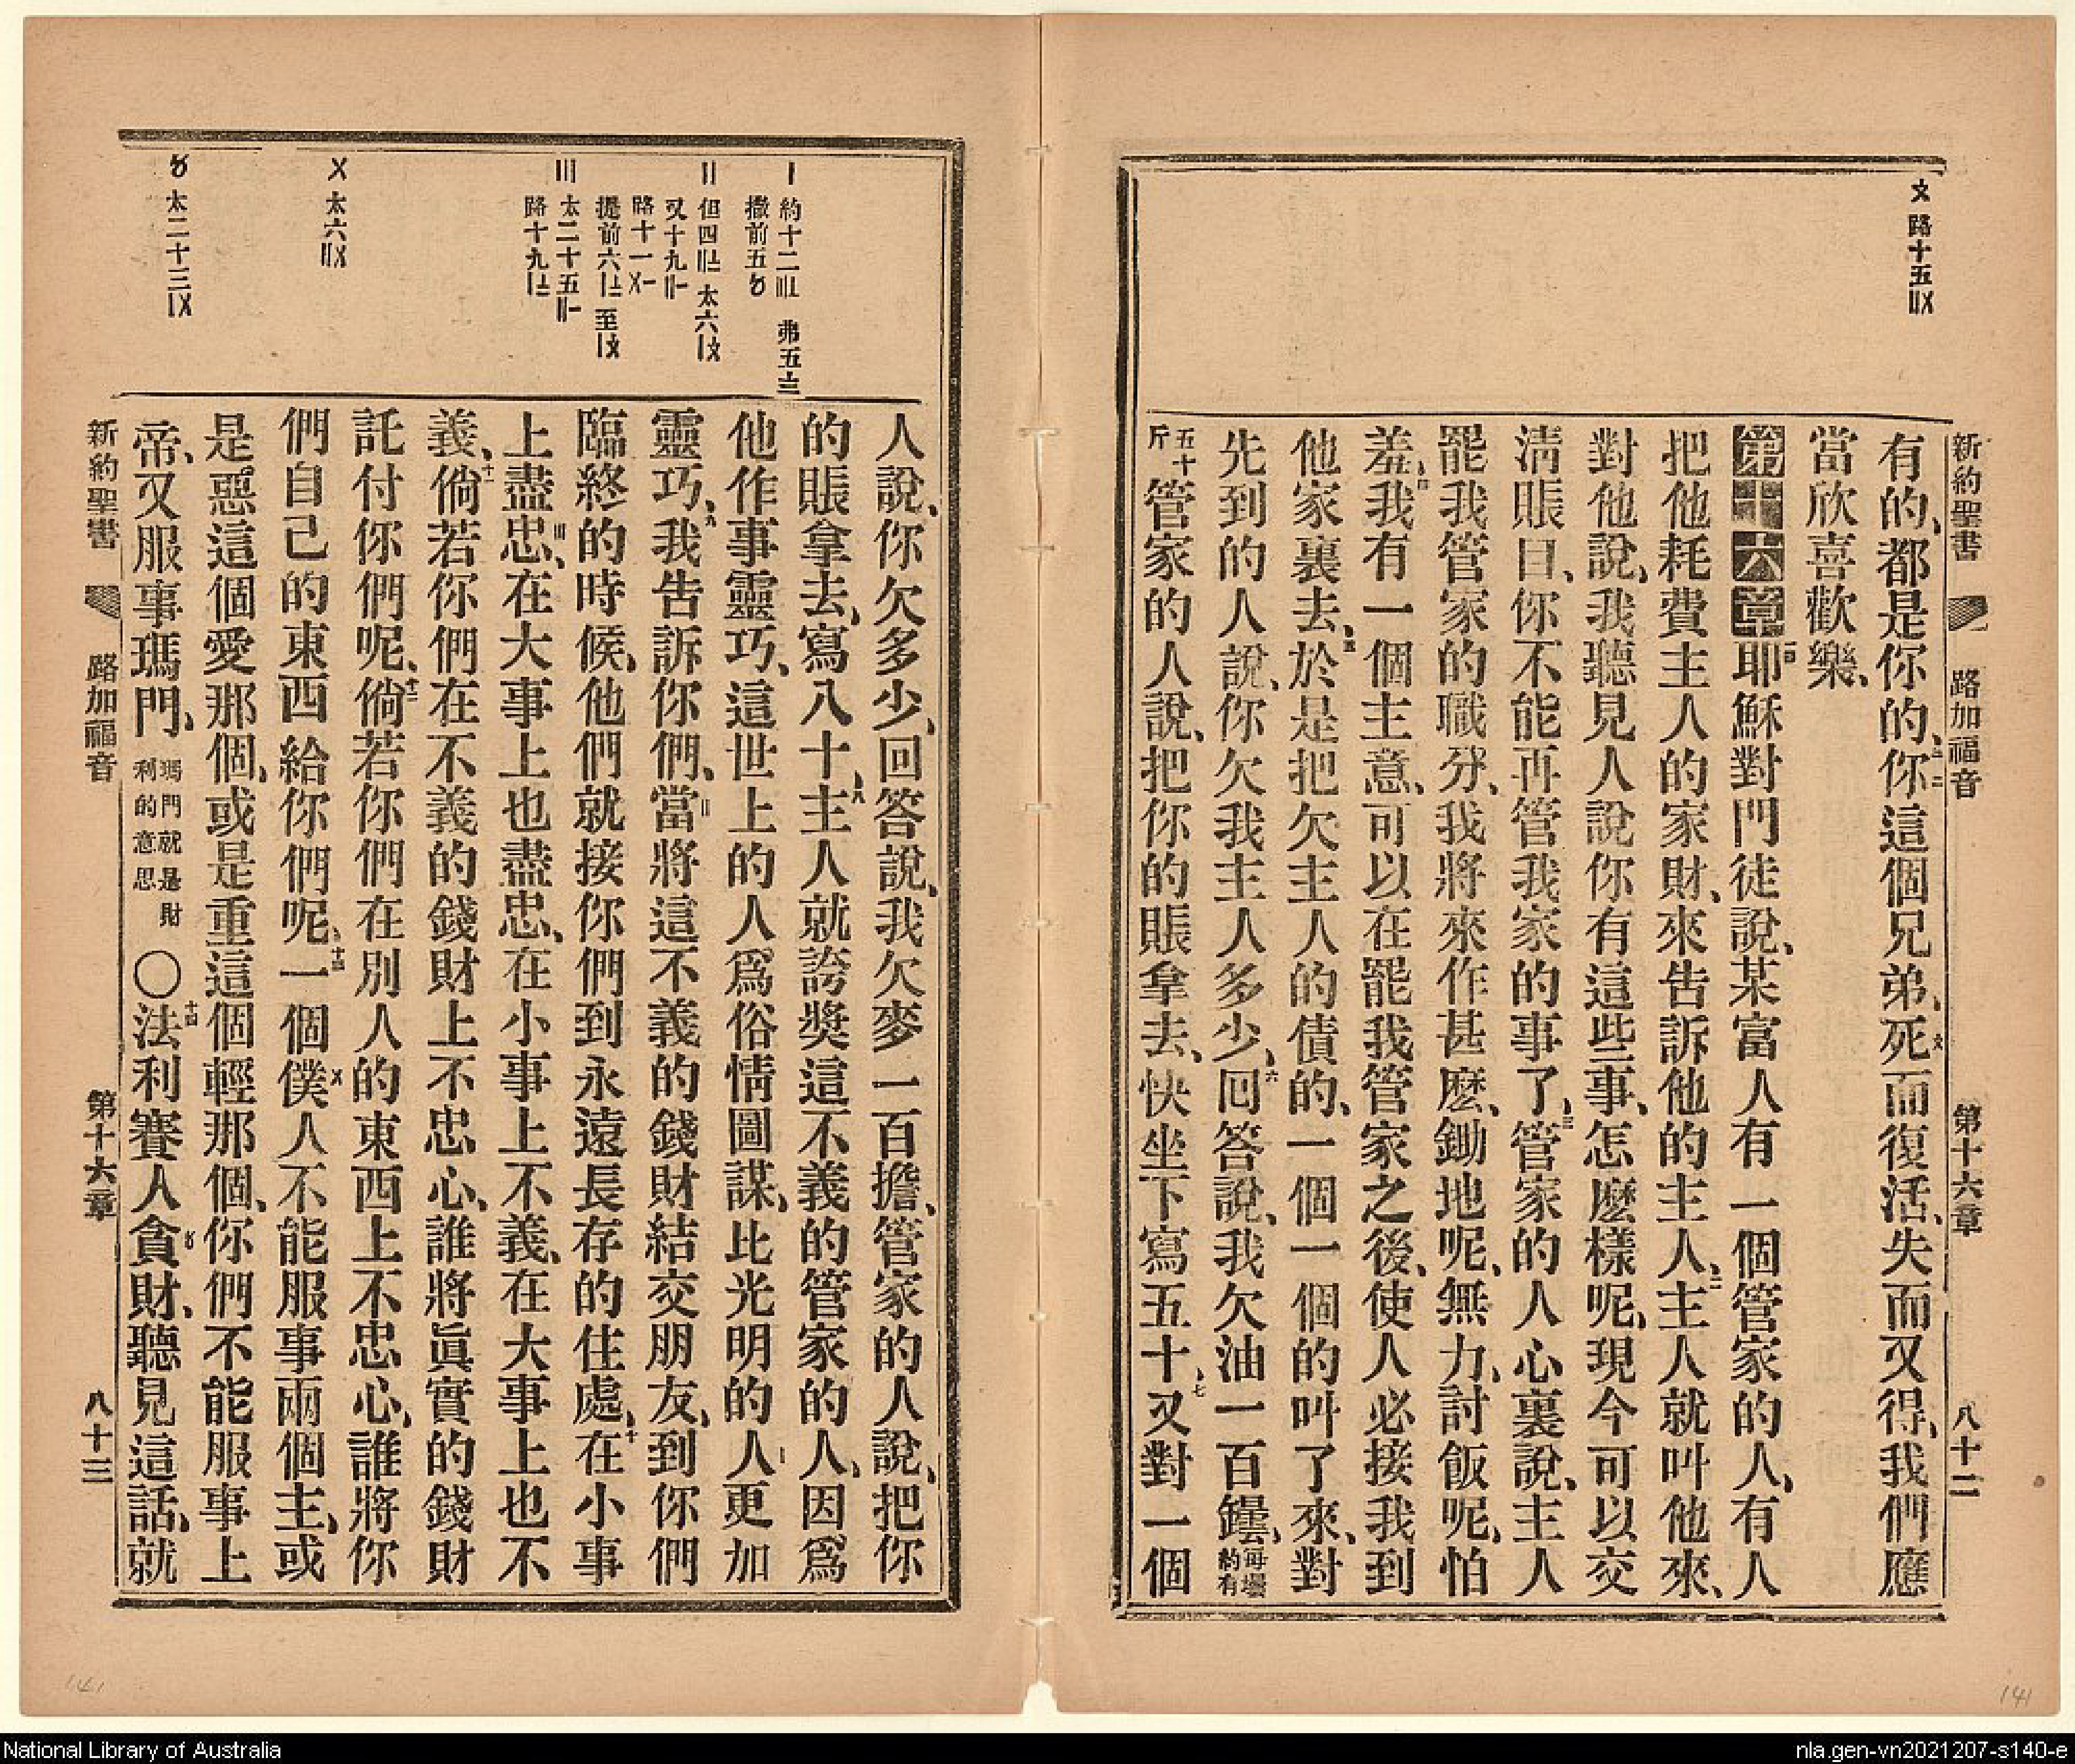 新約聖書 路加福音 第十六章 八十二
〤 路十五〢〤
有的、都是你的、三十二你這個兄弟、死而復活、失而又得、我們應
當欣喜歡樂、
第十六章 一耶穌對門徒說、某富人有一個管家的人、有人
把他耗費主人的家財、來告訴他的主人、二主人就叫他來、
對他說、我聽見人說你有這些事、怎麽樣呢、現今可以交
淸賬目、你不能再管我家的事了、三管家的人心裏說、主人
罷我管家的職分、我將來作甚麽、鋤地呢、無力、討飯呢、怕
羞、四我有一個主意、可以在罷我管家之後、使人必接我到
他家裏去、五於是把欠主人的債的、一個一個的叫了來、對
先到的人說、你欠我主人多少、六回答說、我欠油一百罎、每罎約有
五十斤管家的人說、把你的賬拿去、快坐下寫五十、七又對一個
〡 約十二〣〦 弗五〨
撒前五〥
〢 但四〢〧 太六〡〩
又十九〢〡
路十一〤〡
提前六〡〧 至〡〩
〣 太二十五〢〡
路十九〡〧
〤 太六〢〤
〥 太二十三〡〤
人說、你欠多少、回答說、我欠麥一百擔、管家的人說、把你
的賬拿去、寫八十、八主人就誇奬這不義的管家的人、因爲
他作事靈巧、這世上的人爲俗情圖謀、比光明的人更加
靈巧、九我吿訴你們、當將這不義的錢財結交朋友、到你們
臨終的時候、他們就接你們到永遠長存的住處、十在小事
上盡忠、在大事上也盡忠、在小事上不義、在大事上也不
義、十一倘若你們在不義的錢財上不忠心、誰將眞實的錢財
託付你們呢、十二倘若你們在別人的東西上不忠心、誰將你
們自己的東西給你們呢、十三一個僕人不能服事兩個主、或
是惡這個愛那個、或是重這個輕那個、你們不能服事上
帝、又服事瑪門、瑪門就是財利的意思 〇十四法利賽人貪財、聽見這話、就
新約聖書 路加福音 第十六章 八十三
141
141
National Library of Australia
nla.gen-vn2021207-s140-e